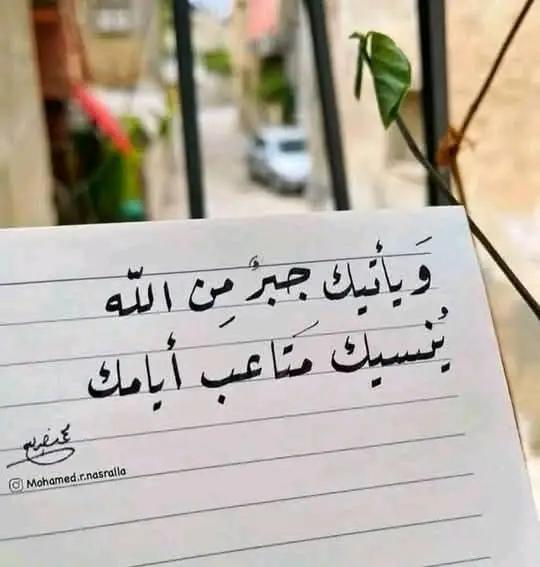 وَيأتيك جبرٌ مِن اللّه
يُنسيك مَتاعب أيامك
Mohamed.r.nasralla